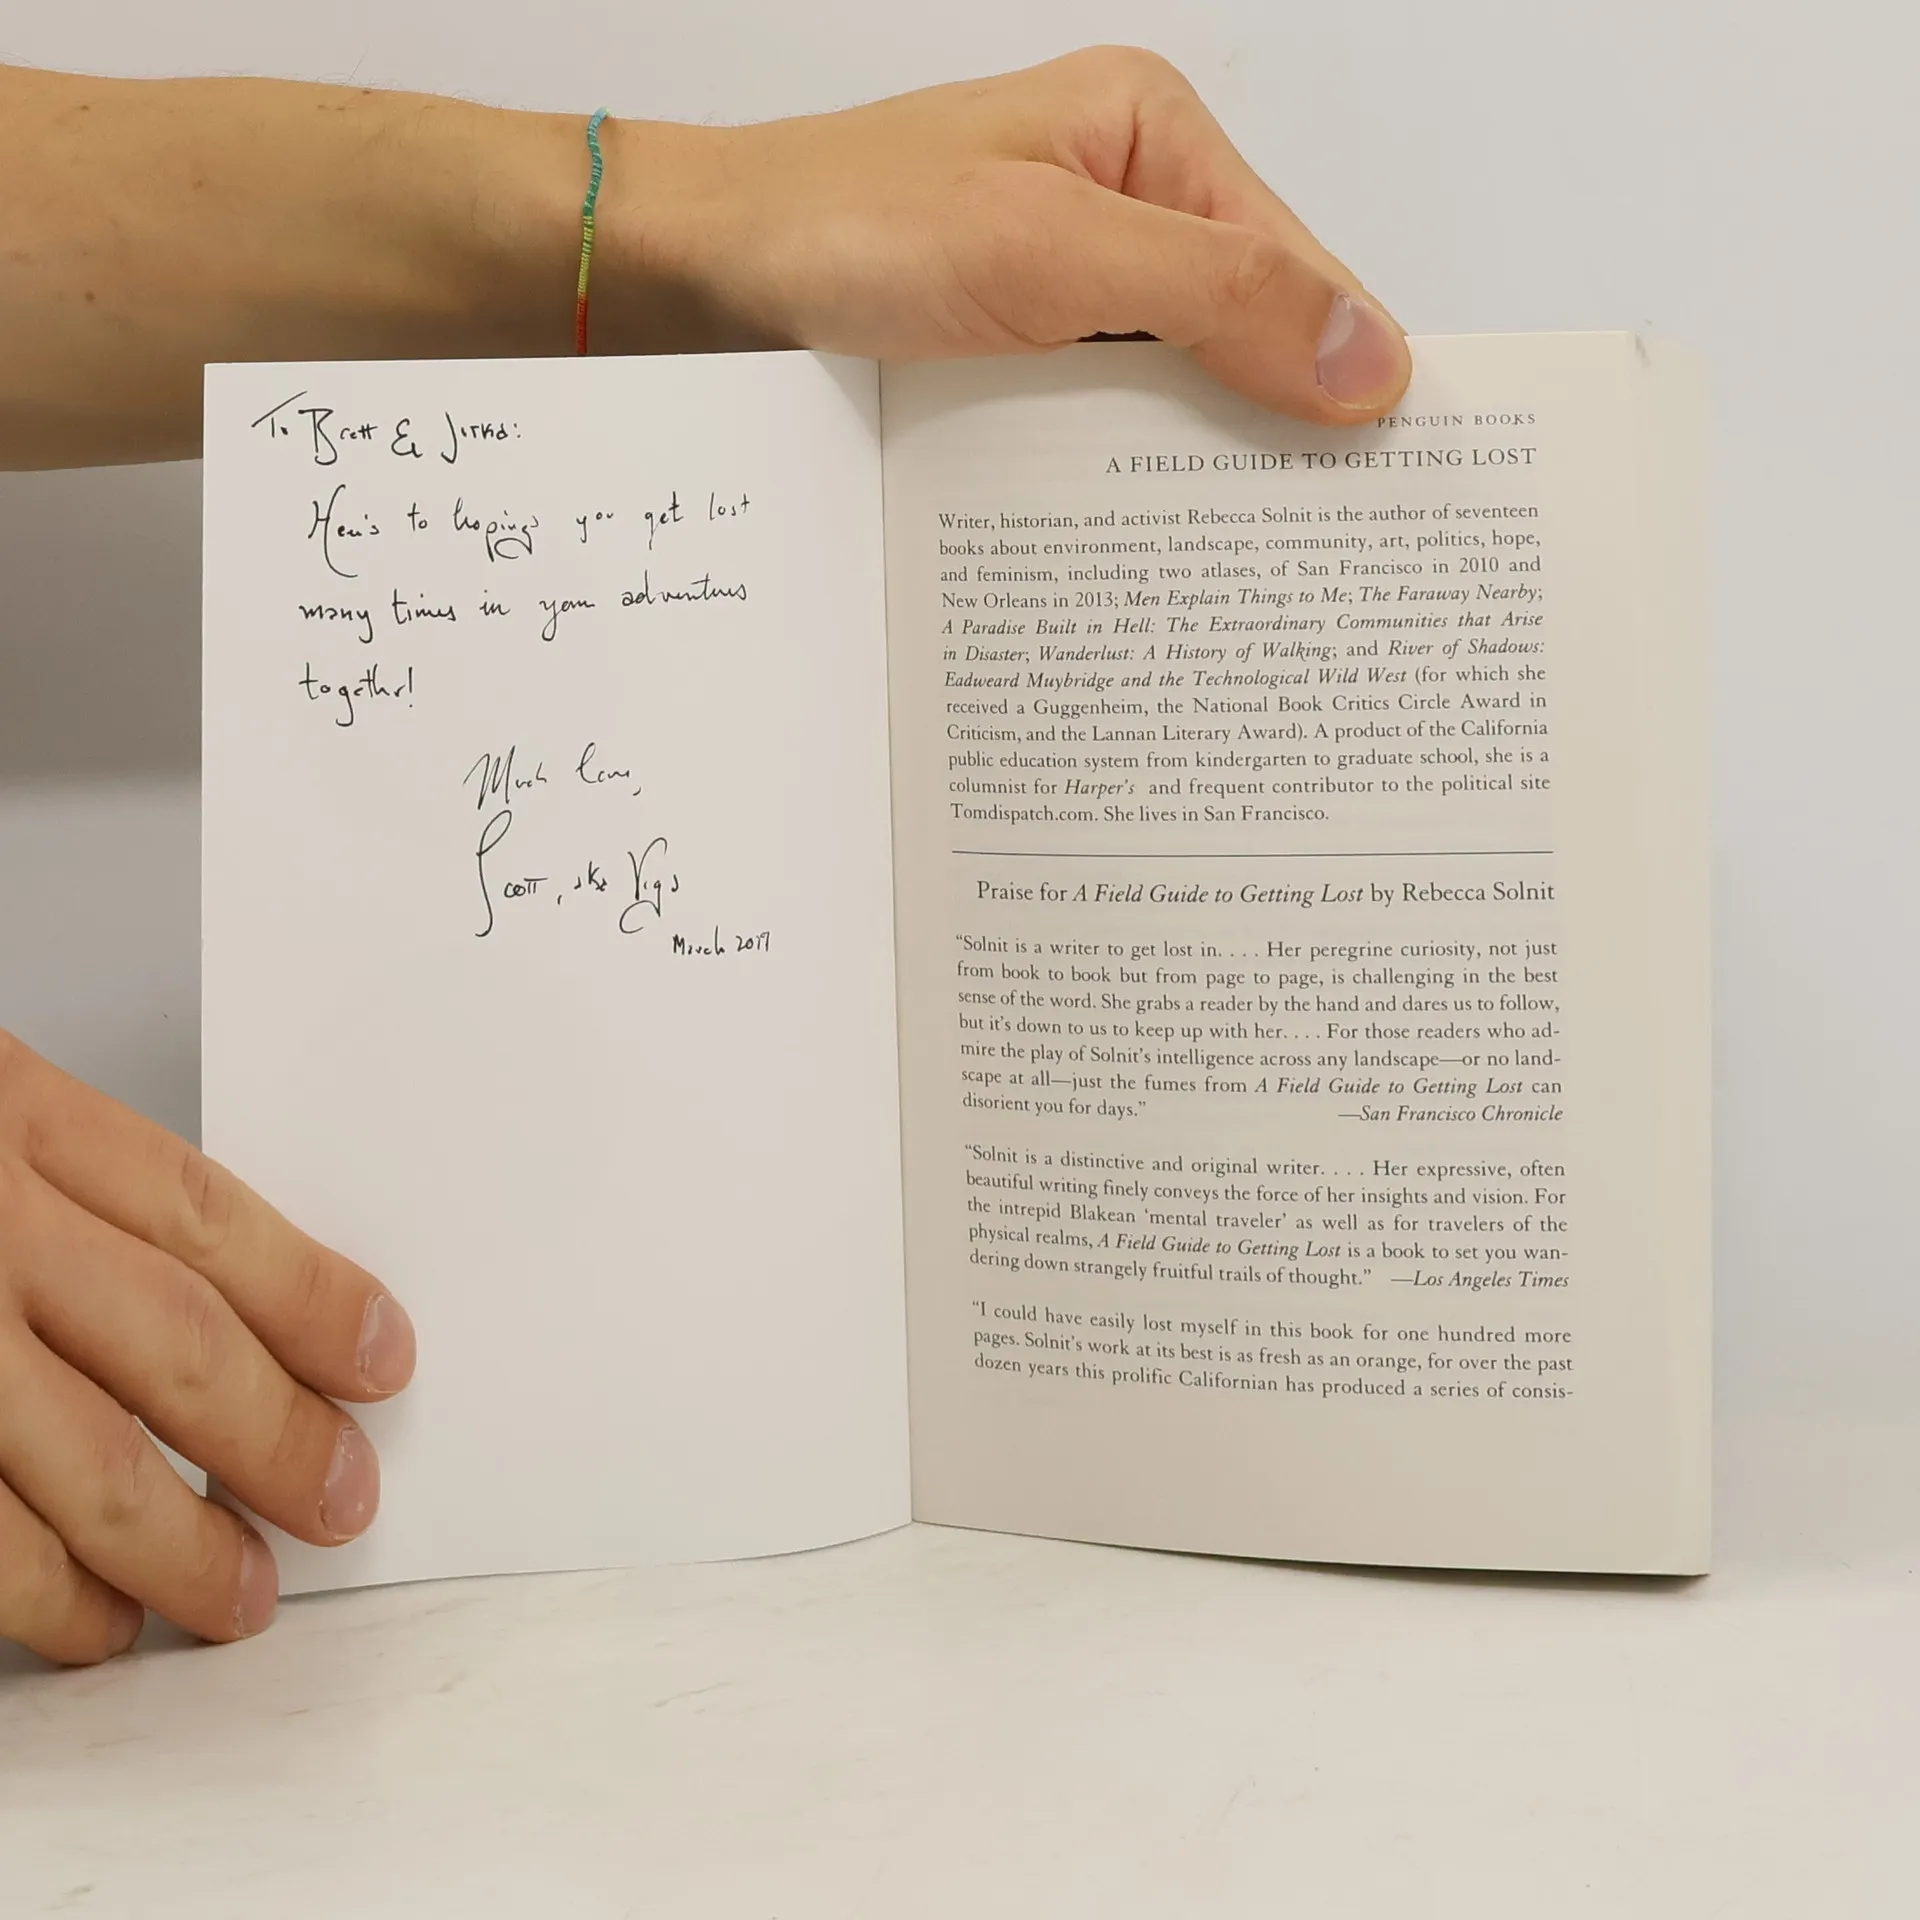 To Brett & Jitka:
Here's to hoping you get lost
many times in your adventures
together!
Much love,
Scott, aka Vigo
March 2017
PENGUIN BOOKS
A FIELD GUIDE TO GETTING LOST
Writer, historian, and activist Rebecca Solnit is the author of seventeen
books about environment, landscape, community, art, politics, hope,
and feminism, including two atlases, of San Francisco in 2010 and
New Orleans in 2013; Men Explain Things to Me; The Faraway Nearby;
A Paradise Built in Hell: The Extraordinary Communities that Arise
in Disaster; Wanderlust: A History of Walking; and River of Shadows:
Eadweard Muybridge and the Technological Wild West (for which she
received a Guggenheim, the National Book Critics Circle Award in
Criticism, and the Lannan Literary Award). A product of the California
public education system from kindergarten to graduate school, she is a
columnist for Harper's and frequent contributor to the political site
Tomdispatch.com. She lives in San Francisco.
Praise for A Field Guide to Getting Lost by Rebecca Solnit
“Solnit is a writer to get lost in. . . . Her peregrine curiosity, not just
from book to book but from page to page, is challenging in the best
sense of the word. She grabs a reader by the hand and dares us to follow,
but it's down to us to keep up with her. . . . For those readers who ad-
mire the play of Solnit's intelligence across any landscape—or no land-
scape at all—just the fumes from A Field Guide to Getting Lost can
disorient you for days.” —San Francisco Chronicle
“Solnit is a distinctive and original writer. . . . Her expressive, often
beautiful writing finely conveys the force of her insights and vision. For
the intrepid Blakean ‘mental traveler’ as well as for travelers of the
physical realms, A Field Guide to Getting Lost is a book to set you wan-
dering down strangely fruitful trails of thought.” —Los Angeles Times
“I could have easily lost myself in this book for one hundred more
pages. Solnit's work at its best is as fresh as an orange, for over the past
dozen years this prolific Californian has produced a series of consis-